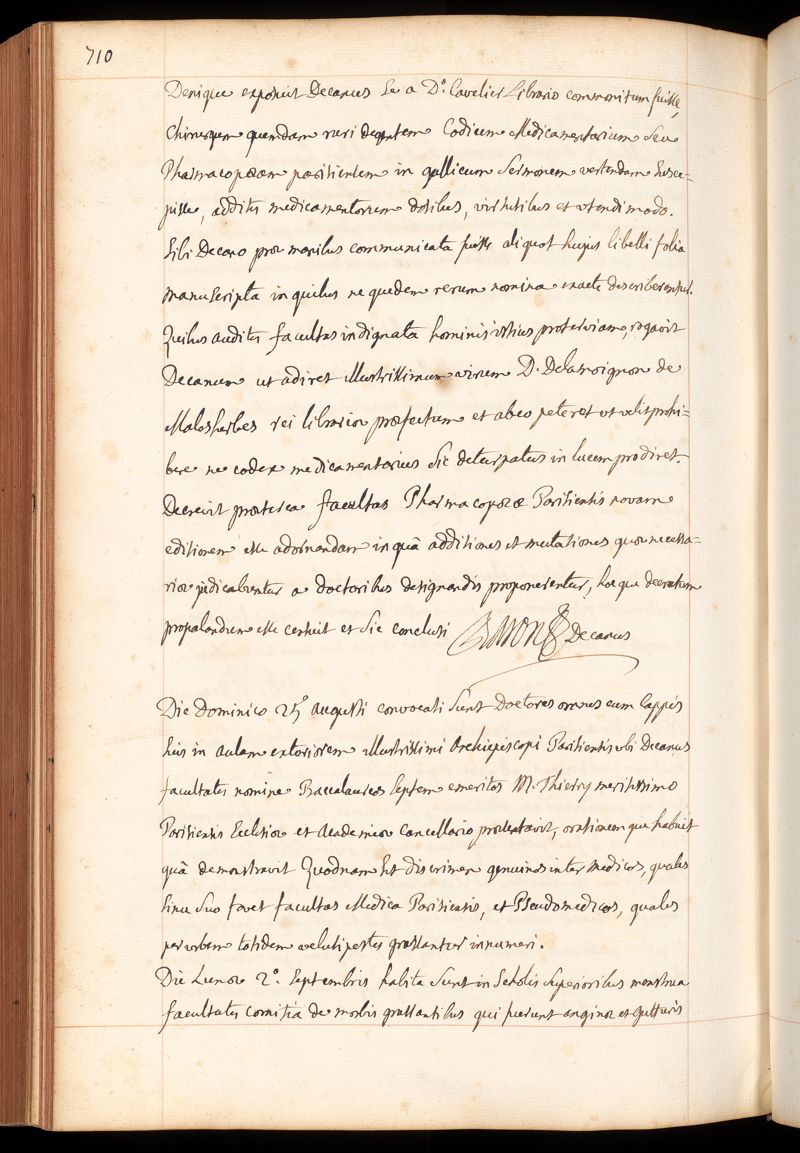 710
Denique exposuit Decanus se a D.° Cavelier Librario commonitum fuisse,
chirurgum quemdam ruri degentem Codicem Medicamentarium seu
Pharmacopœam parisiensem in gallicum sermonem vertendam susce-
pisse, additis medicamentorum dosibus, virtutibus et utendi modo.
sibi Decano præ manibus communicata fuisse aliquot hujus libelli folia
manuscripta in quibus ne quidem rerum nomina exacte describerentur.
Quibus auditis facultas indignata hominis istius proterviam, rogavit
Decanum ut adiret illustrissimum virum D. Delamoignon de
Malesherbes rei librariæ præfectum et ab eo peteret ut velit prohi-
bere ne codex medicamentarius sic deturpatus in lucem prodiret.
Decrevit præterea facultas Pharmacopœæ Parisiensis novam
editionem esse adornandam in quâ additiones et mutationes quæ necessa-
riæ judicabuntur a doctoribus designandis proponerentur, hocque decretum
propalandum esse censuit et sic conclusi Baron Decanus
Die Dominico 25° augusti convocati sunt doctores omnes cum cappis
suis in aulam exteriorem illustrissimi Archiepiscopi Parisiensis ubi Decanus
facultatis nomine Baccalaureos septem emeritos M. Thierry meritissimo
Parisiensis Ecclesiæ et Academiæ Cancellario præsentavit, orationemque habuit
quâ demonstravit Quodnam sit discrimen genuinos inter Medicos, quales
sinu suo fovet facultas Medica Parisiensis, et Pseudomedicos, quales
per urbem totidem veluti pestes grassantur innumeri.
Die Lunæ 2°. septembris habita sunt in Scholis superioribus menstrua
facultatis comitia de morbis grassantibus qui fuerunt anginæ et gutturis